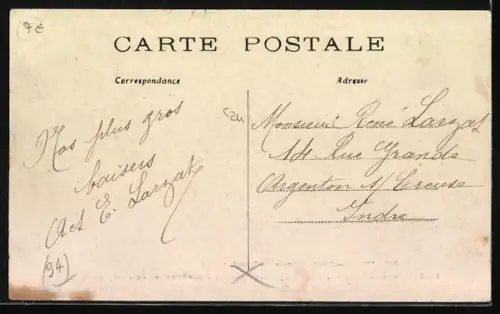 7€
CARTE POSTALE
Correspondance
Adresse
Nos plus gros
baisers
Act E. Larzat
(94)
Monsieur René Larzat
14 Rue Grande
Argenton s/ Creuse
Indre